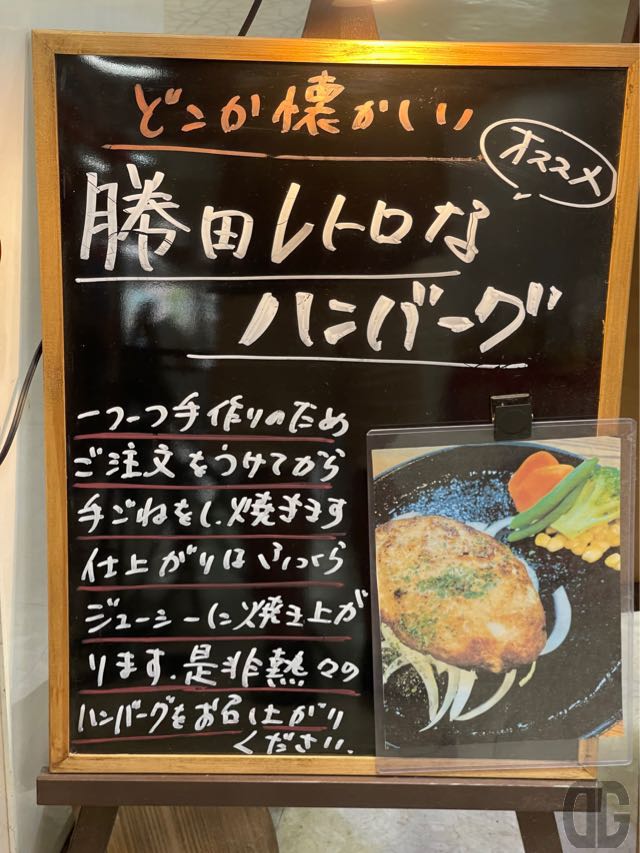 どこか懐かしい
オススメ
勝田レトロな
ハンバーグ
一つ一つ手作りのため
ご注文をうけてから
手ごねをし、焼きます
仕上がりはふっくら
ジューシーに焼き上が
ります。是非熱々の
ハンバーグをお召し上がり
ください。
DG